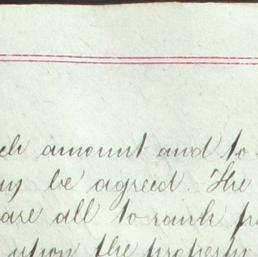 amount and to
be agreed. The
are all to rank
upon the property